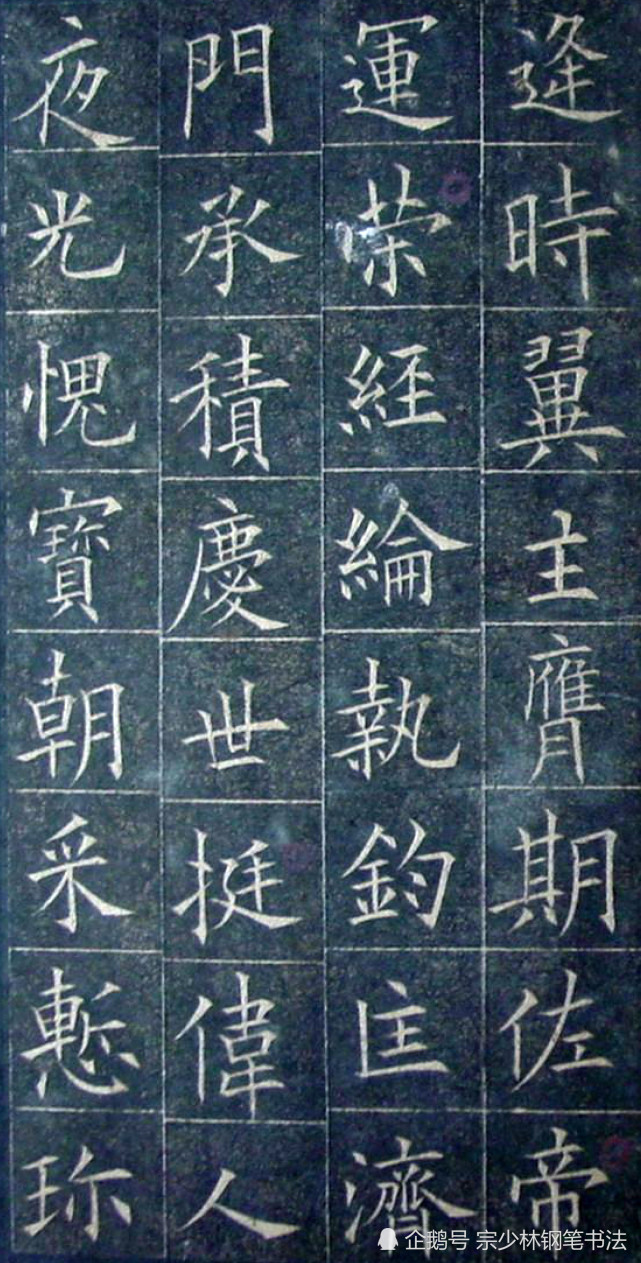 逢時翼主膺期佐帝
運策經綸執鈞匡濟
門承積慶世挺偉人
夜光愧寶朝采慙珎
企鹅号 宗少林钢笔书法